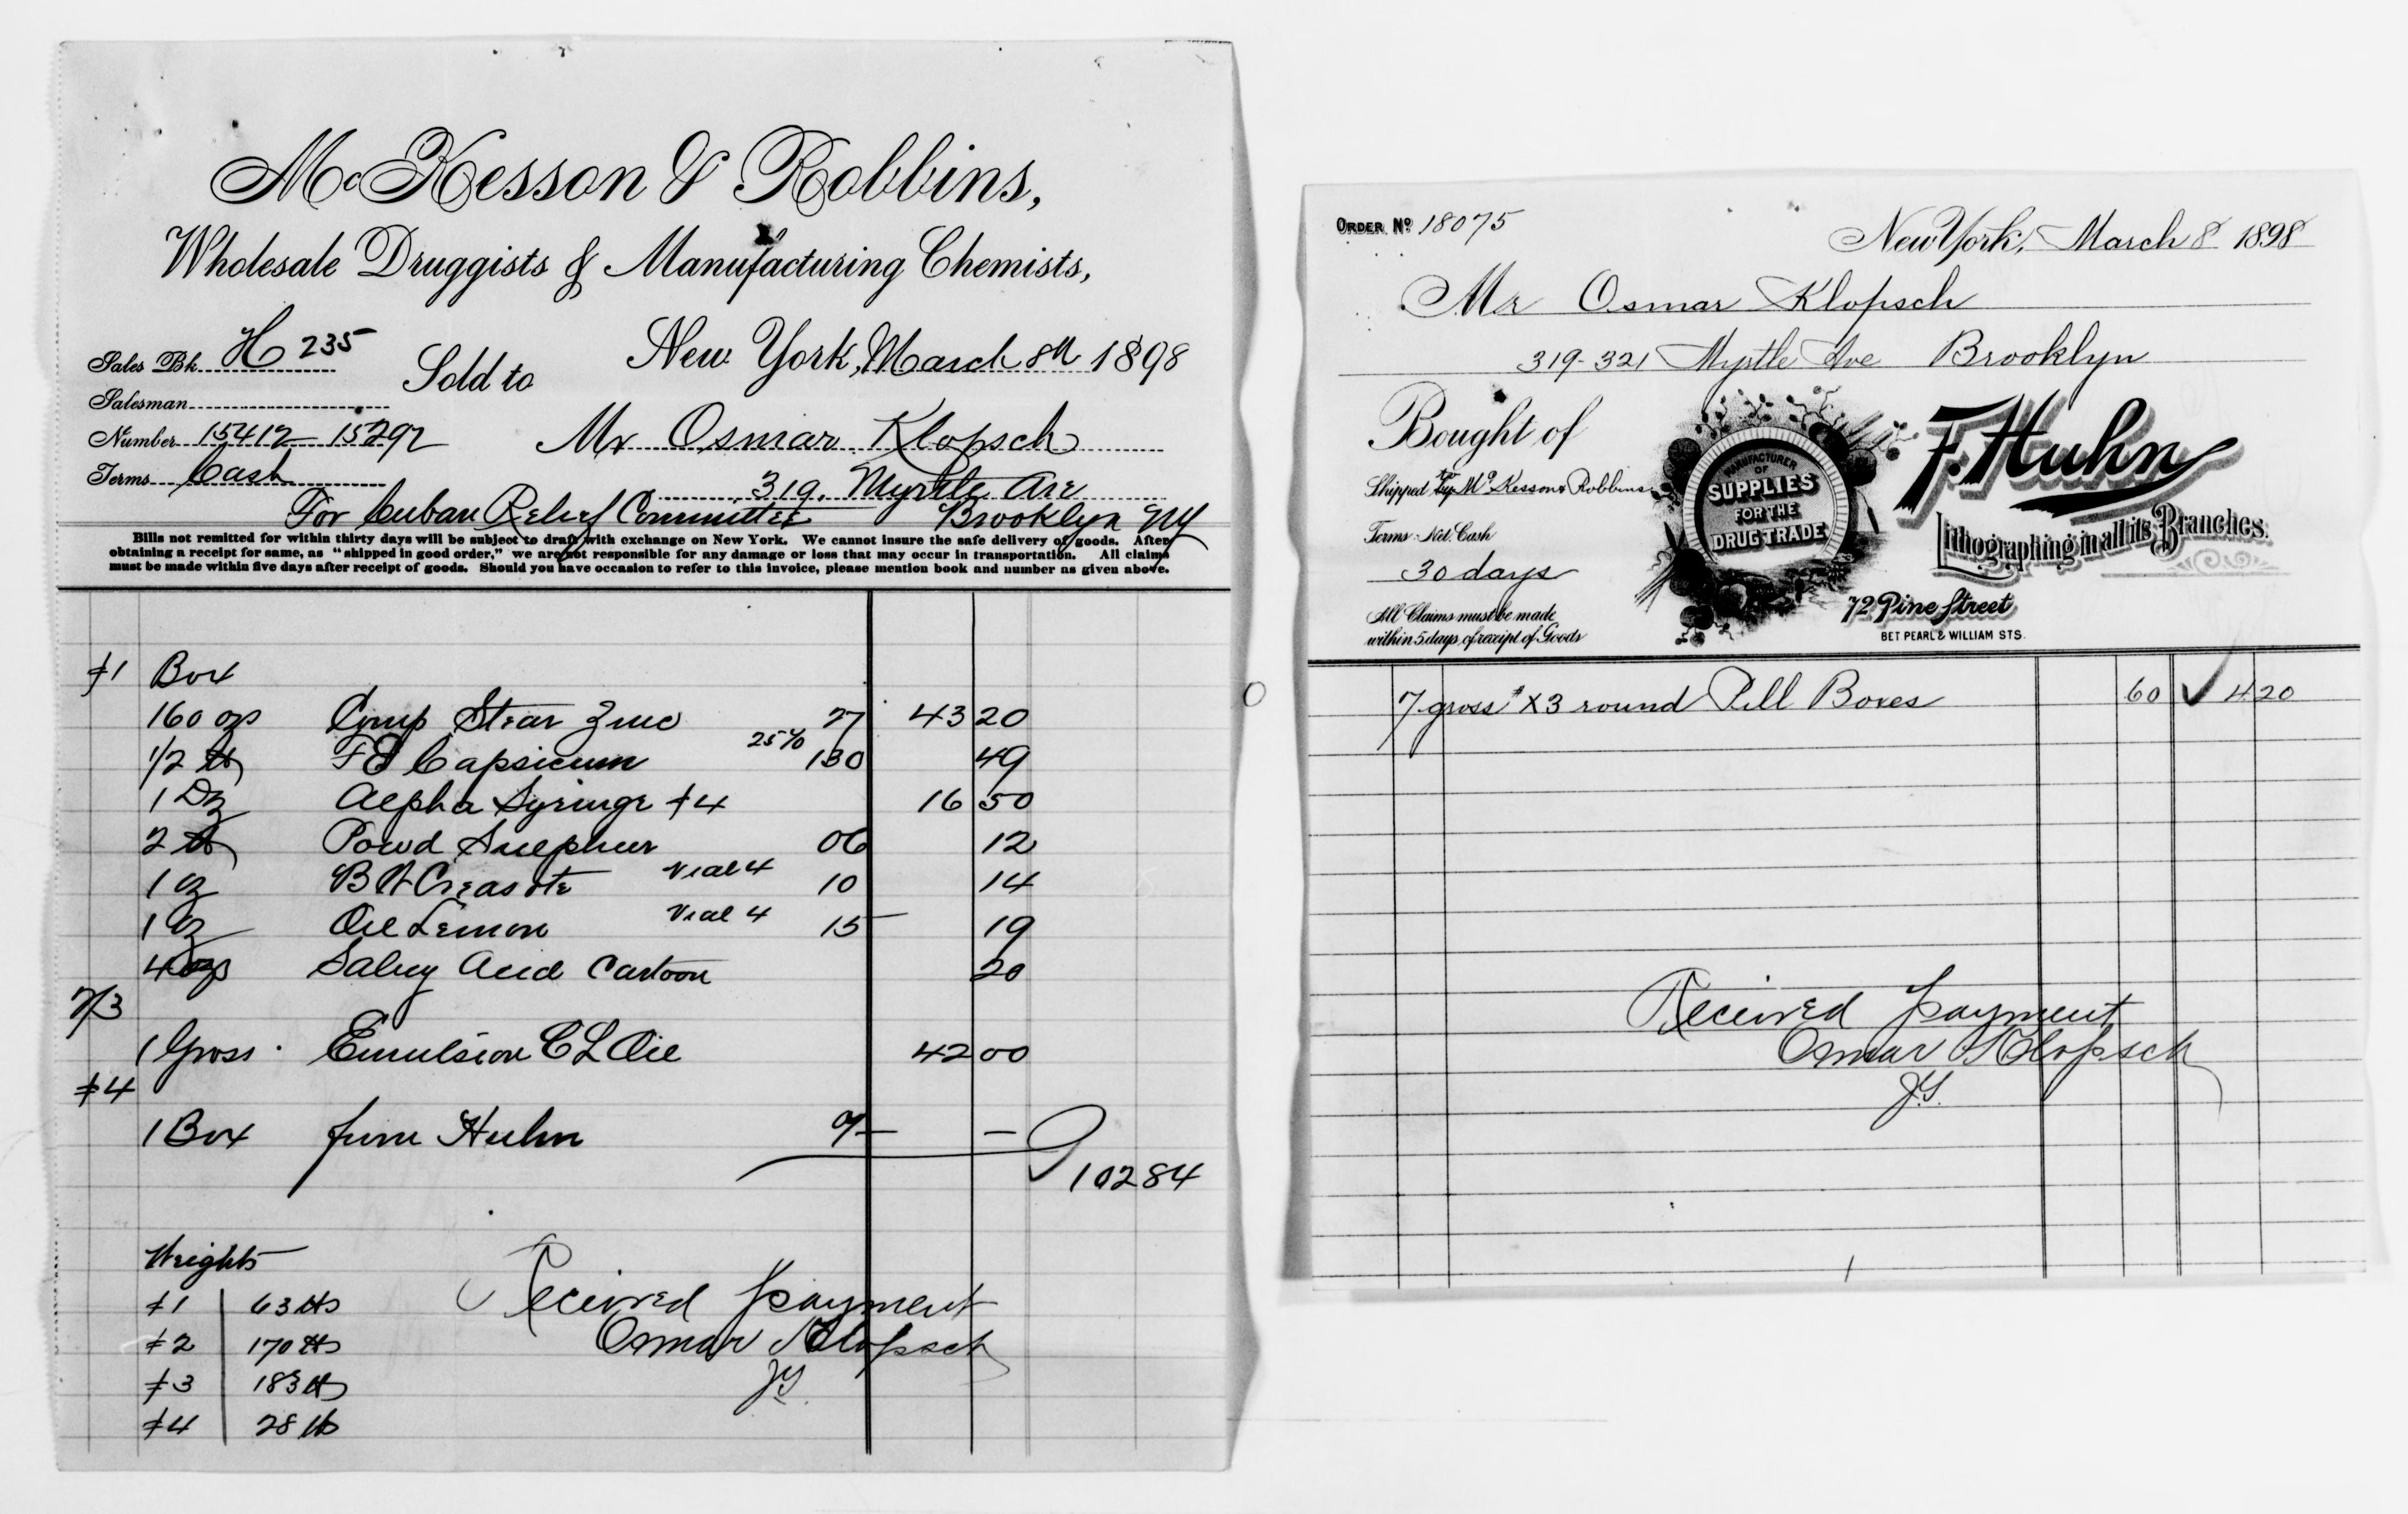 McKesson & Robbins,
Wholesale Druggists & Manufacturing Chemists,
Sales Bk. H 235
Sold to
New York, March 8th 1898
Salesman
Number 15412 15292
Mr Osmar Klopsch
Terms Cash
319. Myrtle Ave
For Cuban Relief Committee Brooklyn NY
Bills not remitted for within thirty days will be subject to draft with exchange on New York. We cannot insure the safe delivery of goods. After
obtaining a receipt for same, as "shipped in good order," we are not responsible for any damage or loss that may occur in transportation. All claims
must be made within five days after receipt of goods. Should you have occasion to refer to this invoice, please mention book and number as given above.
#1 Box
160 ozs Comp Stear Zinc 27 43 20
1/2 lb F E Capsicum 25% 130 49
1 Dz Alpha Syringe #4 16 50
2 lb Powd Sulphur 06 12
1 oz B W Creasote Vial 4 10 14
1 oz Oil Lemon Vial 4 15 19
4 ozs Salicy Acid Cartoon 20
2/3
1 Gross Emulsion C L Oil 42 00
#4
1 Box from Huhn — —
102 84
Weights
#1 63 lbs
#2 170 lbs
#3 183 lb
#4 28 lb
Received payment
Osmar Klopsch
JY
ORDER No 18075
New York, March 8 1898
Mr Osmar Klopsch
319-321 Myrtle Ave Brooklyn
Bought of
F. Huhn
MANUFACTURER
OF
SUPPLIES
FOR THE
DRUG TRADE
Lithographing in all its Branches.
72 Pine Street
BET PEARL & WILLIAM STS.
Shipped to McKesson & Robbins
Terms Net Cash
30 days
All Claims must be made
within 5 days of receipt of Goods
7 gross #X3 round Pill Boxes 60 4 20
Received payment
Osmar Klopsch
JY.